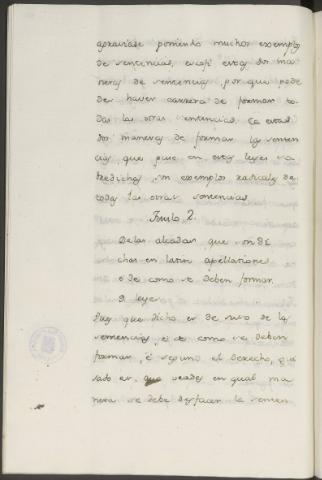 agraviase poniendo muchos exemplos
de sentencias, e casi estas dos ma
neras de sentencias, por que pode
des haver carrera de formar to
das las otras sentencias. Ca estas
dos maneras de formar las senten
cias, que puse en estas leyes sa
bredichas, son exemplos radicales de
todas las otras sentencias
Titulo 2.
De las alzadas que son di
chas en latin apellationes
e de como se deben formar
9 leyes
Pues que dicho es de suso de las
sentencias, e de como se deben
formar, e segund el derecho, gui
sado es, que veades en qual ma
nera se debe desfacer la senten